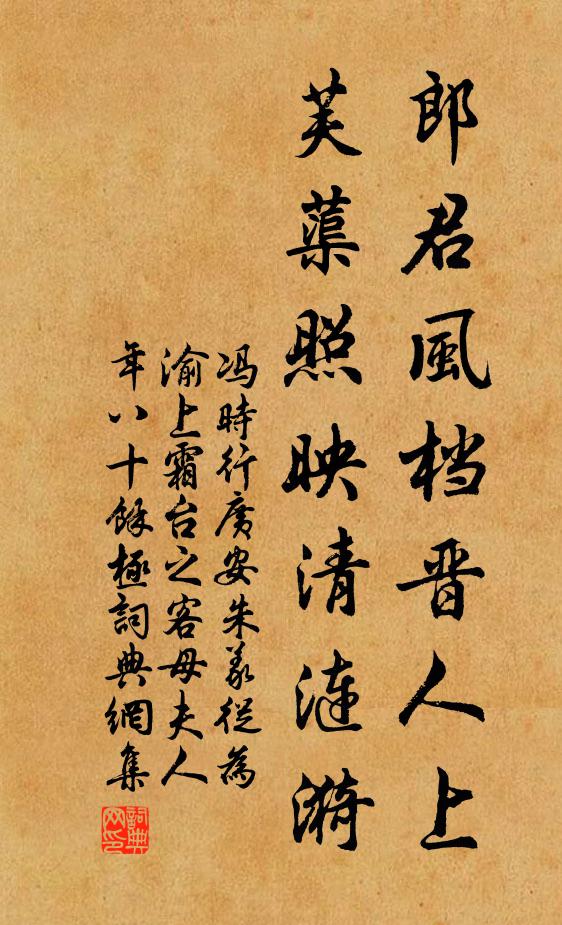 郎君風档晋人上
芙蕖照映清涟漪
冯時行廣安朱義從為
渝上霜台之客母夫人
年八十餘極詞典網集
詞典
网印